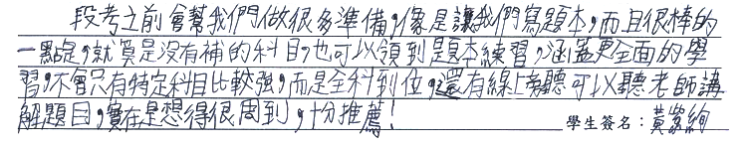 段考之前會幫我們做很多準備，像是讓我們寫題本，而且很棒的
一點是，就算是沒有補的科目，也可以領到題本練習，涵蓋更全面的學
習，不會只有特定科目比較強，而是全科到位，還有線上旁聽可以聽老師講
解題目，實在是想得很周到，十分推薦！
學生簽名：黃紫絢